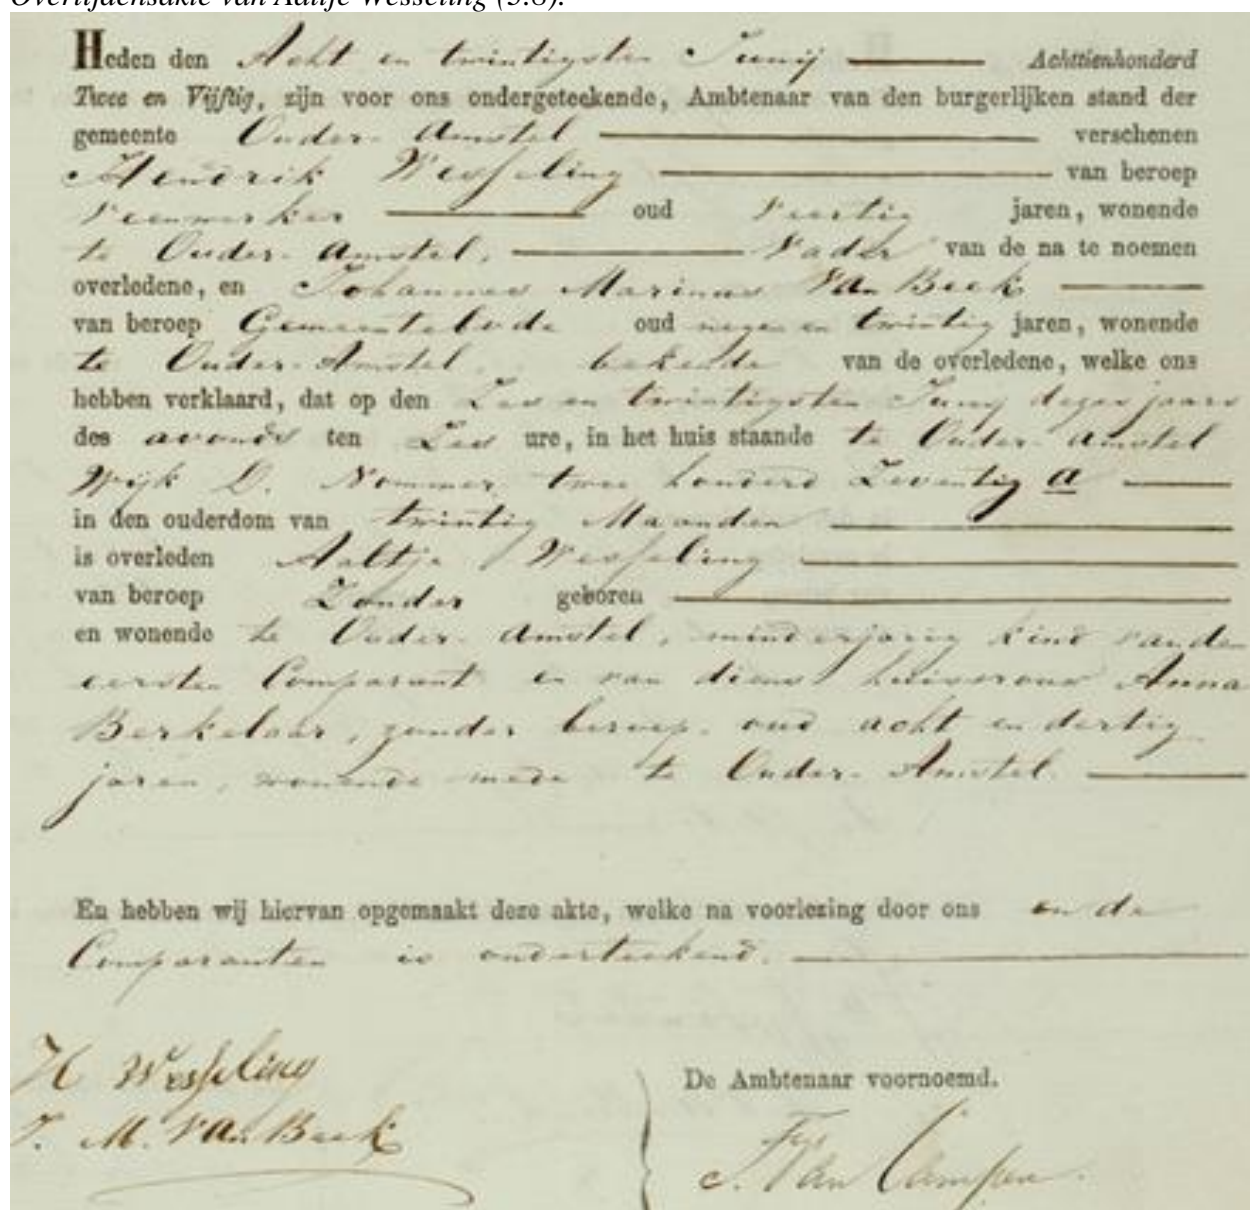 Overlijdensakte van Aaltje Wesseling (5.8).
Heden den Acht en twintigsten Junij Achttienhonderd
Twee en Vijftig, zijn voor ons ondergeteekende, Ambtenaar van den burgerlijken stand der
gemeente Ouder-Amstel verschenen
Hendrik Wesseling van beroep
veenwerker oud veertig jaren, wonende
te Ouder-Amstel, Vader van de na te noemen
overledene, en Johannes Marinus Van Beek
van beroep Gemeentebode oud negen en twintig jaren, wonende
te Ouder-Amstel, bekende van de overledene, welke ons
hebben verklaard, dat op den Zes en twintigsten Junij dezes jaars
des avonds ten Zes ure, in het huis staande te Ouder-Amstel
Wijk D. Nommer twee honderd Zeventig a
in den ouderdom van twintig Maanden
is overleden Aaltje Wesseling
van beroep Zonder geboren
en wonende te Ouder-Amstel, minderjarig kind van den
eersten Comparant en van diens huisvrouw Anna
Berkelaar, zonder beroep, oud acht en dertig
jaren, wonende mede te Ouder-Amstel.
En hebben wij hiervan opgemaakt deze akte, welke na voorlezing door ons en de
Comparanten is onderteekend.
H Wesseling
J. M. Van Beek
De Ambtenaar voornoemd.
J. Van Campen